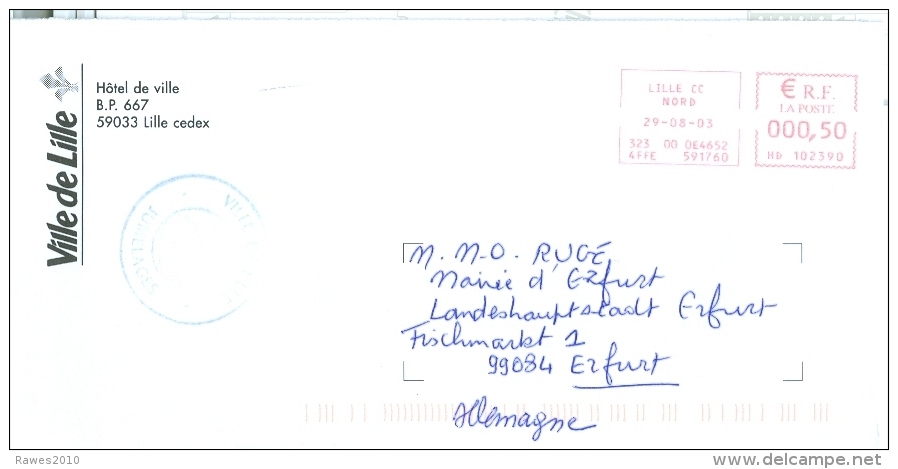 Ville de Lille
Hôtel de ville
B.P. 667
59033 Lille cedex
LILLE CC
NORD
29-08-03
323 00 0E4652
4FFE 591760
€ R.F.
LA POSTE
000,50
HD 102390
VILLE
M. M-O. RUGE
Mairie d'Erfurt
Landeshauptstadt Erfurt
Fischmarkt 1
99084 Erfurt
Allemagne
Rawes2010
delcampe.net